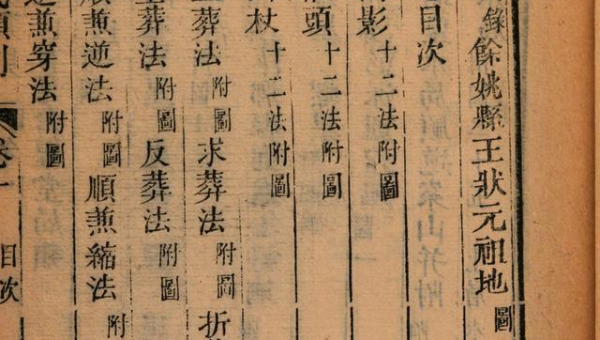 錄餘姚縣王狀元祖地圖
目次
影十二法附圖
頭十二法附圖
杖十二法附圖
葬法附圖求葬法附圖折
葬法附圖反葬法附圖
順兼逆法附圖順兼縮法附
逆兼穿法附圖
卷一 目次